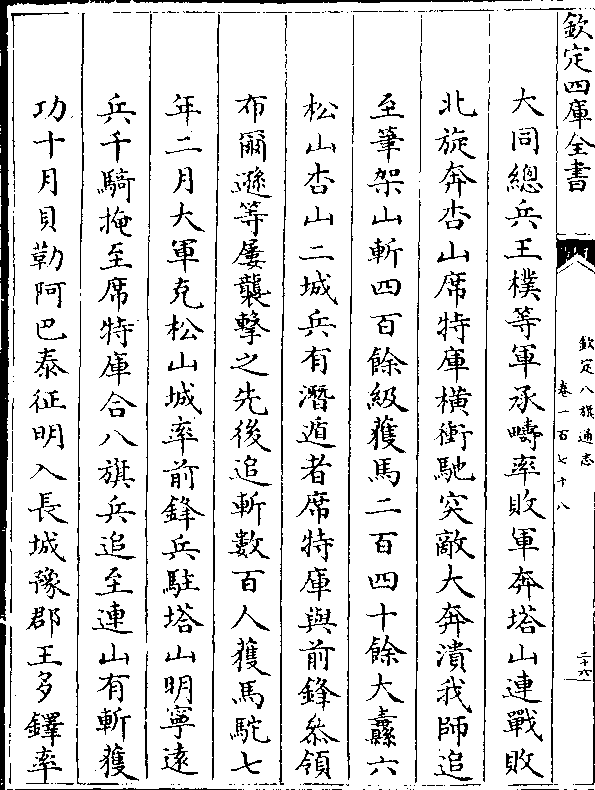 欽定四庫全書
欽定八旗通志
卷一百七十八
二十六
大同總兵王樸等軍承疇率敗軍奔塔山連戰敗
北旋奔杏山席特庫橫衝馳突敵大奔潰我師追
至筆架山斬四百餘級獲馬二百四十餘大纛六
松山杏山二城兵有潛遁者席特庫與前鋒叅領
布爾遜等屢襲擊之先後追斬數百人獲馬駝七
年二月大軍克松山城率前鋒兵駐塔山明寧遠
兵千騎掩至席特庫合八旗兵追至連山有斬獲
功十月貝勒阿巴泰征明入長城豫郡王多鐸率